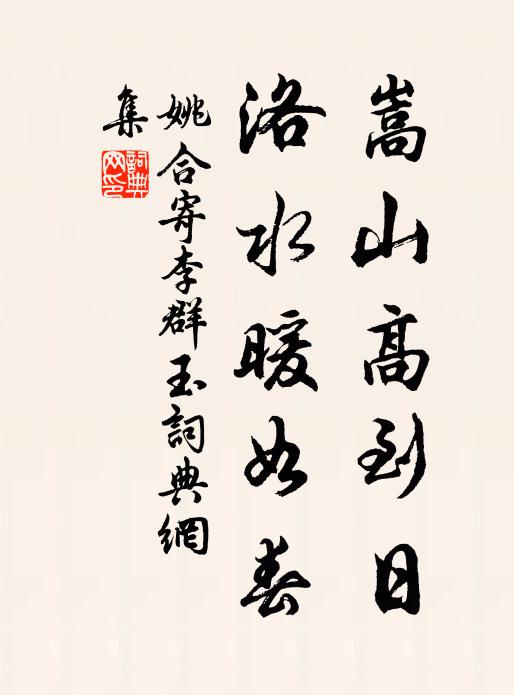 嵩山高到日
洛水暖如春
姚合寄李群玉詞典網
集
詞典网印